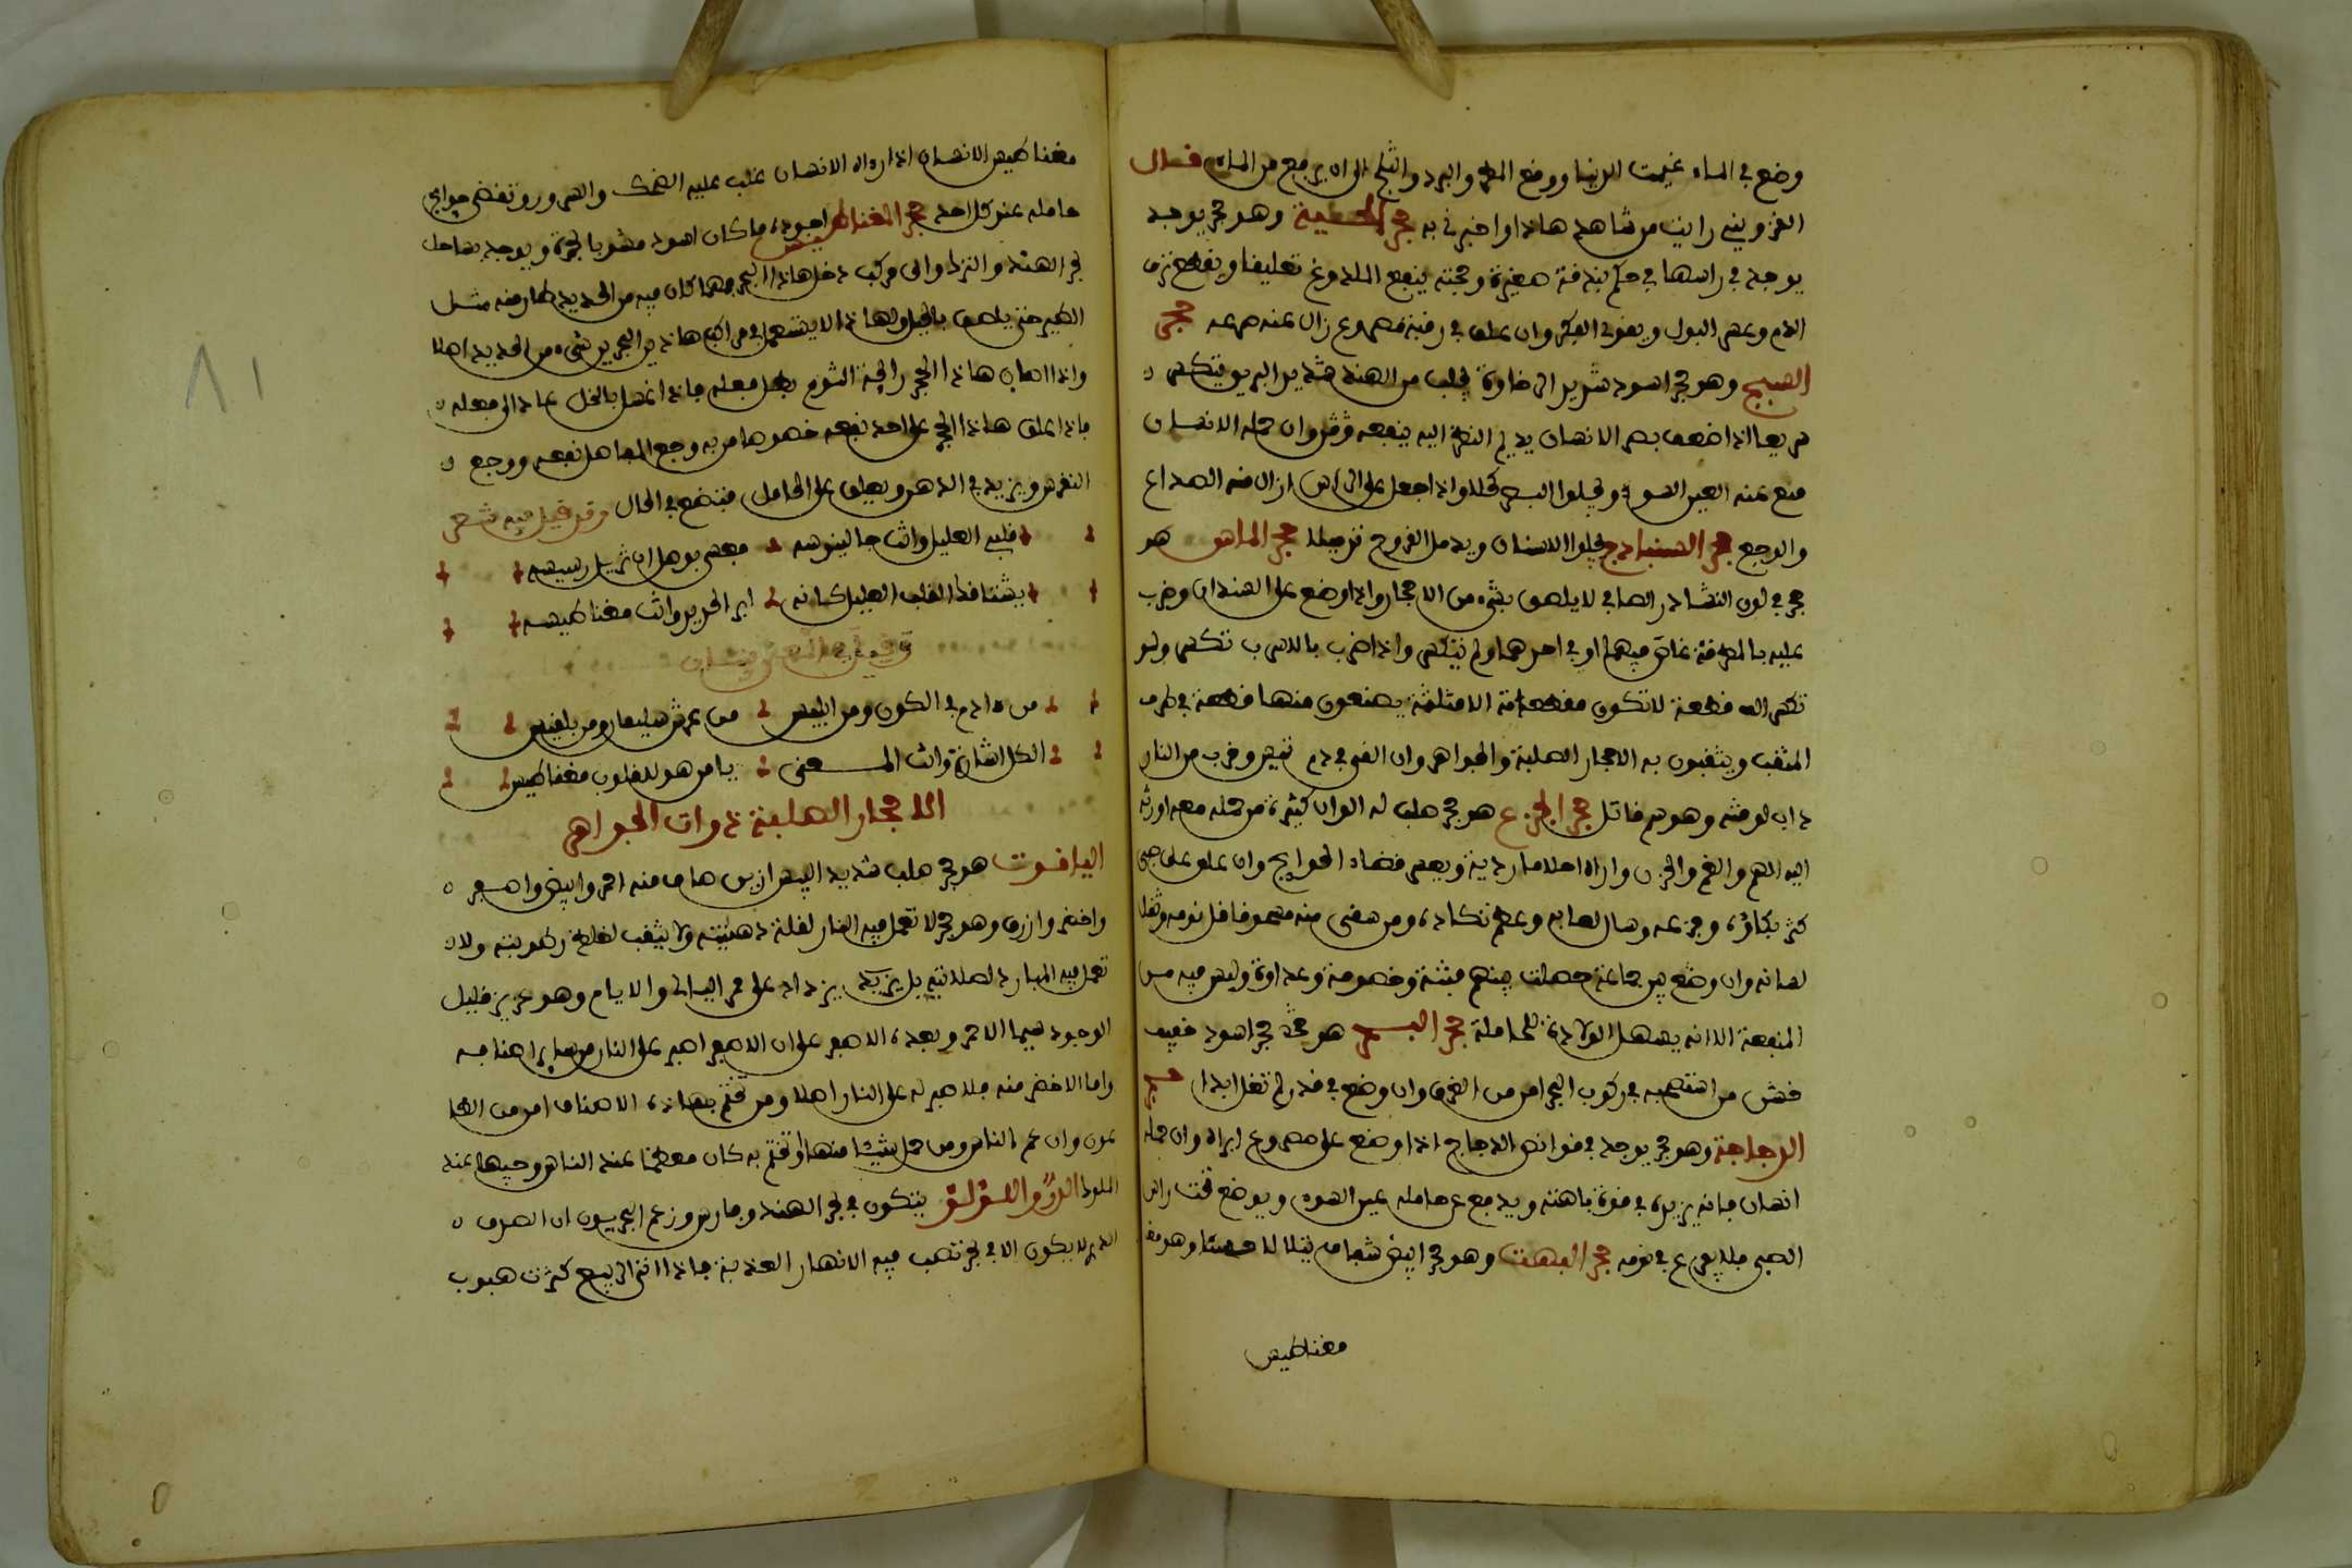 وضع في الماء غيمت الدنيا ووقع المطر والبرد والثلج الى ان يرفع من الماء قال
القزويني رايت من شاهد هاذا واخبرني به حجر الحية وهو حجر يوجد
يوجد في راسها في حكم بندقة صغيرة ومحنته ينفع الملدوغ تعليقا ويقطع نزف
الدم وعسر البول ويقوي الفكر وان علق في رقبة مصروع زال عنه صرعه حجر
السبج وهو حجر اسود شديد الرخاوة يجلب من الهند شديد البريق يتكسر
سريعا اذا ضعف بصر الانسان يديم النظر اليه ينفعه وقو وان حمله الانسان
منع عنه العين السوء ويجلوا البصر كحلا واذا جعل على الراس ازال منه الصداع
والوجع حجر السنباذج يجلوا الاسنان ويدمل القروح حجر الماس هو
حجر في لون النشادر الصافي لا يلصق بشيء من الاحجار واذا وضع على السندان وضرب
عليه بالمطرقة غاص فيهما او في احدهما ولم يتكسر واذا ضرب بالاسرب تكسر ولو
تكسر الف قطعة لا تكون مقطعاته الا مثلثة يصنعون منها قطعة في طرف
المثقب ويثقبون به الاحجار الصلبة والجواهر وان القي في دم تيس وقرب من النار
ذاب لوقته وهو سم قاتل حجر الجزع هو حجر صلب له الوان كثيرة من حمله معه اورث
اليه الهم والغم والحزن واراه احلاما ردية ويعسر قضاء الحوايج وان علق على صبي
كثر بكاؤه وجزعه وسال لعابه وعظم نكاده ومن سقي منه مسحوقا قل نومه وثقل
لسانه وان وضع بين جماعة حصلت بينهم فتنة وخصومة وعداوة وليس فيه من
المنفعة الا انه يسهل الولادة للحاملة حجر البسر هو حجر اسود خفيف
خشن من استصحبه في ركوب البحر امن من الغرق وان وضع في قدر لم تغل ابدا حجر
الدجاجة وهو حجر يوجد في قوانص الدجاج اذا وضع على مصروع ابراه وان حمله
انسان فانه يزيد في قوة باهته ويدفع عن حامله عين السوء ويوضع تحت راس
الصبي فلا يفزع في نومه حجر البهت وهو حجر ابيض شفاف يتلالا حسنا وهو
مغناطيس
مغناطيس الانسان اذا راه الانسان غلب عليه الضحك والسرور وتقضى حوايج
حامله عند كل احد حجر المغناطيس اجوده ما كان اسود مشوبا بحمرة ويوجد بساحل
بحر الهند والترك واي مركب دخل هاذا البحر فمهما كان فيه من الحديد طار منه مثل
الطير حتى يلصق بالجبل ولهاذا لا يستعمل في مراكب هاذين البحرين شيء من الحديد اصلا
واذا اصاب هاذا الحجر رايحة الثوم بطل فعله فاذا غسل بالخل عاد الى فعله
فاذا علق هاذا الحجر على احد نفعه خصوصا من به وجع المفاصل نفعه ووجع
النقرس ويزيد في الذهن ويعلق على الحامل فتضع في الحال وقد قيل فيه شعر
قلبي العليل وانت جالينوسه فعسى بوصل ان تزيل رسيسه
يشتاقك القلب العليل كانه ابر الحديد وانت مغناطيسه
من ءادم في الكون ومن ابليس من عرش سليمان ومن بلقيس
الكل اشارة وانت المعنى يا من هو للقلوب مغناطيس
الاحجار الصلبة ذوات الجواهر
الياقوت هو حجر صلب شديد اليبس رزين صاف منه احمر وابيض واصفر
واخضر وازرق وهو حجر لا تعمل فيه النار لقلة دهنيته ولا يثقب لغلظ رطوبته ولا
تعمل فيه المبارد لصلابته بل يزيد يزداد على مر اليالي والايام وهو عزيز قليل
الوجود سيما الاحمر وبعده الاصفر على ان الاصفر اصبر على النار من ساير اصنافه
واما الاخضر منه فلا صبر له على النار اصلا ومن تختم بهاذه الاصناف امن من الطا
عون وان عم الناس ومن حمل شيئا منها او تختم به كان معظما عند الناس وجيها عند
الملوك الدر واللؤلؤ يتكون في بحر الهند وفارس وزعم البحريون ان الصدف
الدر لا يكون الا في بحر تصب فيه الانهار العذبة فاذا اتى الربيع كثرت هبوب